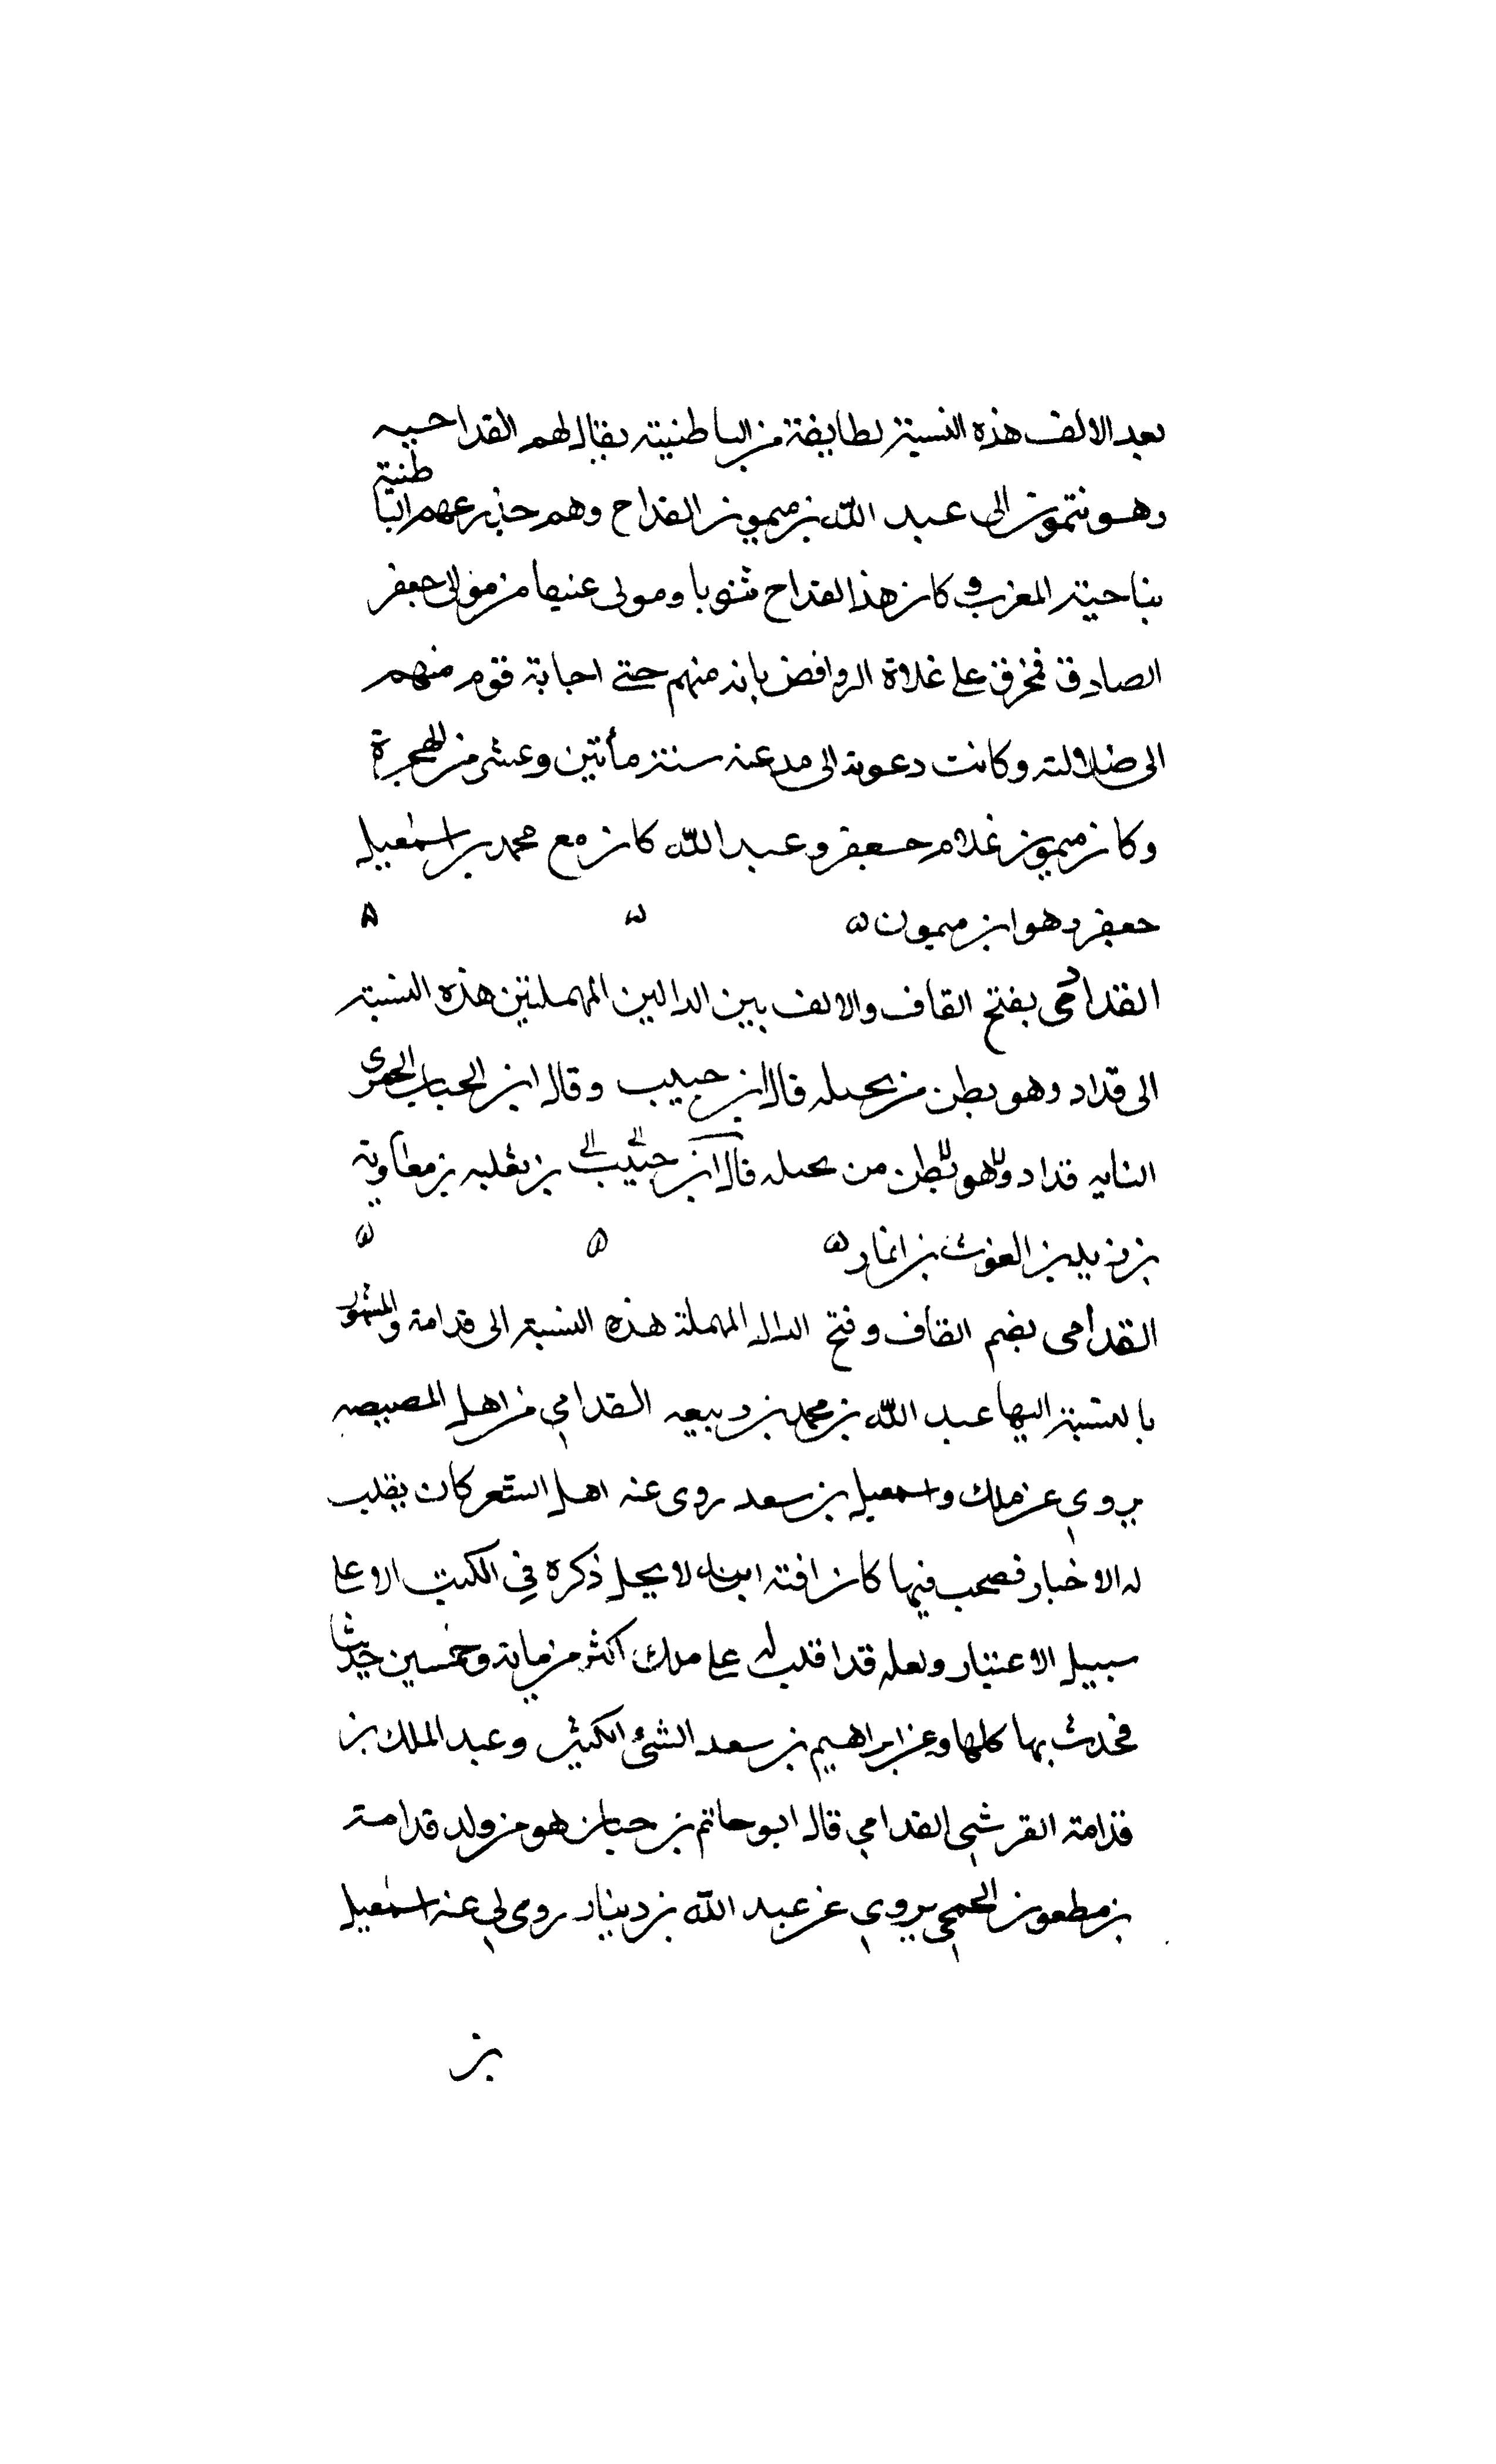 بعد الالف هذه النسبة لطايفة من الباطنية يقال لهم القداحيه
وهو نتمون الى عبد الله بن ميمون القداح وهم الباطنية
بناحية المغرب وكان هذا القداح ثنويا ومولى من موالى جعفر
الصادق فمخرق على غلاة الروافض بانه منهم حتى اجابة قوم منهم
الى ضلالته وكانت دعوته الى سنة مأتين وعشر من الهجرة
وكان ميمون غلام جعفر وعبد الله كان مع محمد بن اسمعيل
جعفر وهو ابن ميمون ه ه ه
القدادى بفتح القاف والالف بين الدالين المهملتين هذه النسبة
الى قداد وهو بطن من بجيله قال ابن حبيب وقال ابن الحباب الحميرى
النسابه قداد وهو بطن من بجيله قال ابن حبيب بن ثعلبه بن معاوية
بن زيد بن الغوث بن انمار ه ه ه
القدامى بضم القاف وفتح الدال المهملة هذه النسبة الى قدامة والمشهور
بالنسبة اليها عبد الله بن محمد بن ربيعه القدامي من اهل المصيصه
يروي عن ملك واسمعيل بن سعد روى عنه اهل الثغر كان يقلب
له الاخبار فيها كان افته ابنه لا يحل ذكره في الكتب الا على
سبيل الاعتبار ولعله قد اقلب له على ملك اكثر من ماية وخمسين حديثا
فحدث بها كلها وعن ابراهيم بن سعد الشئ الكثير وعبد الملك بن
قدامة القرشي القدامي قال ابو حاتم بن حبان هو من ولد قدامة
بن مطعون الجمحي يروي عن عبد الله بن دينار روى لي عنه اسمعيل
بن